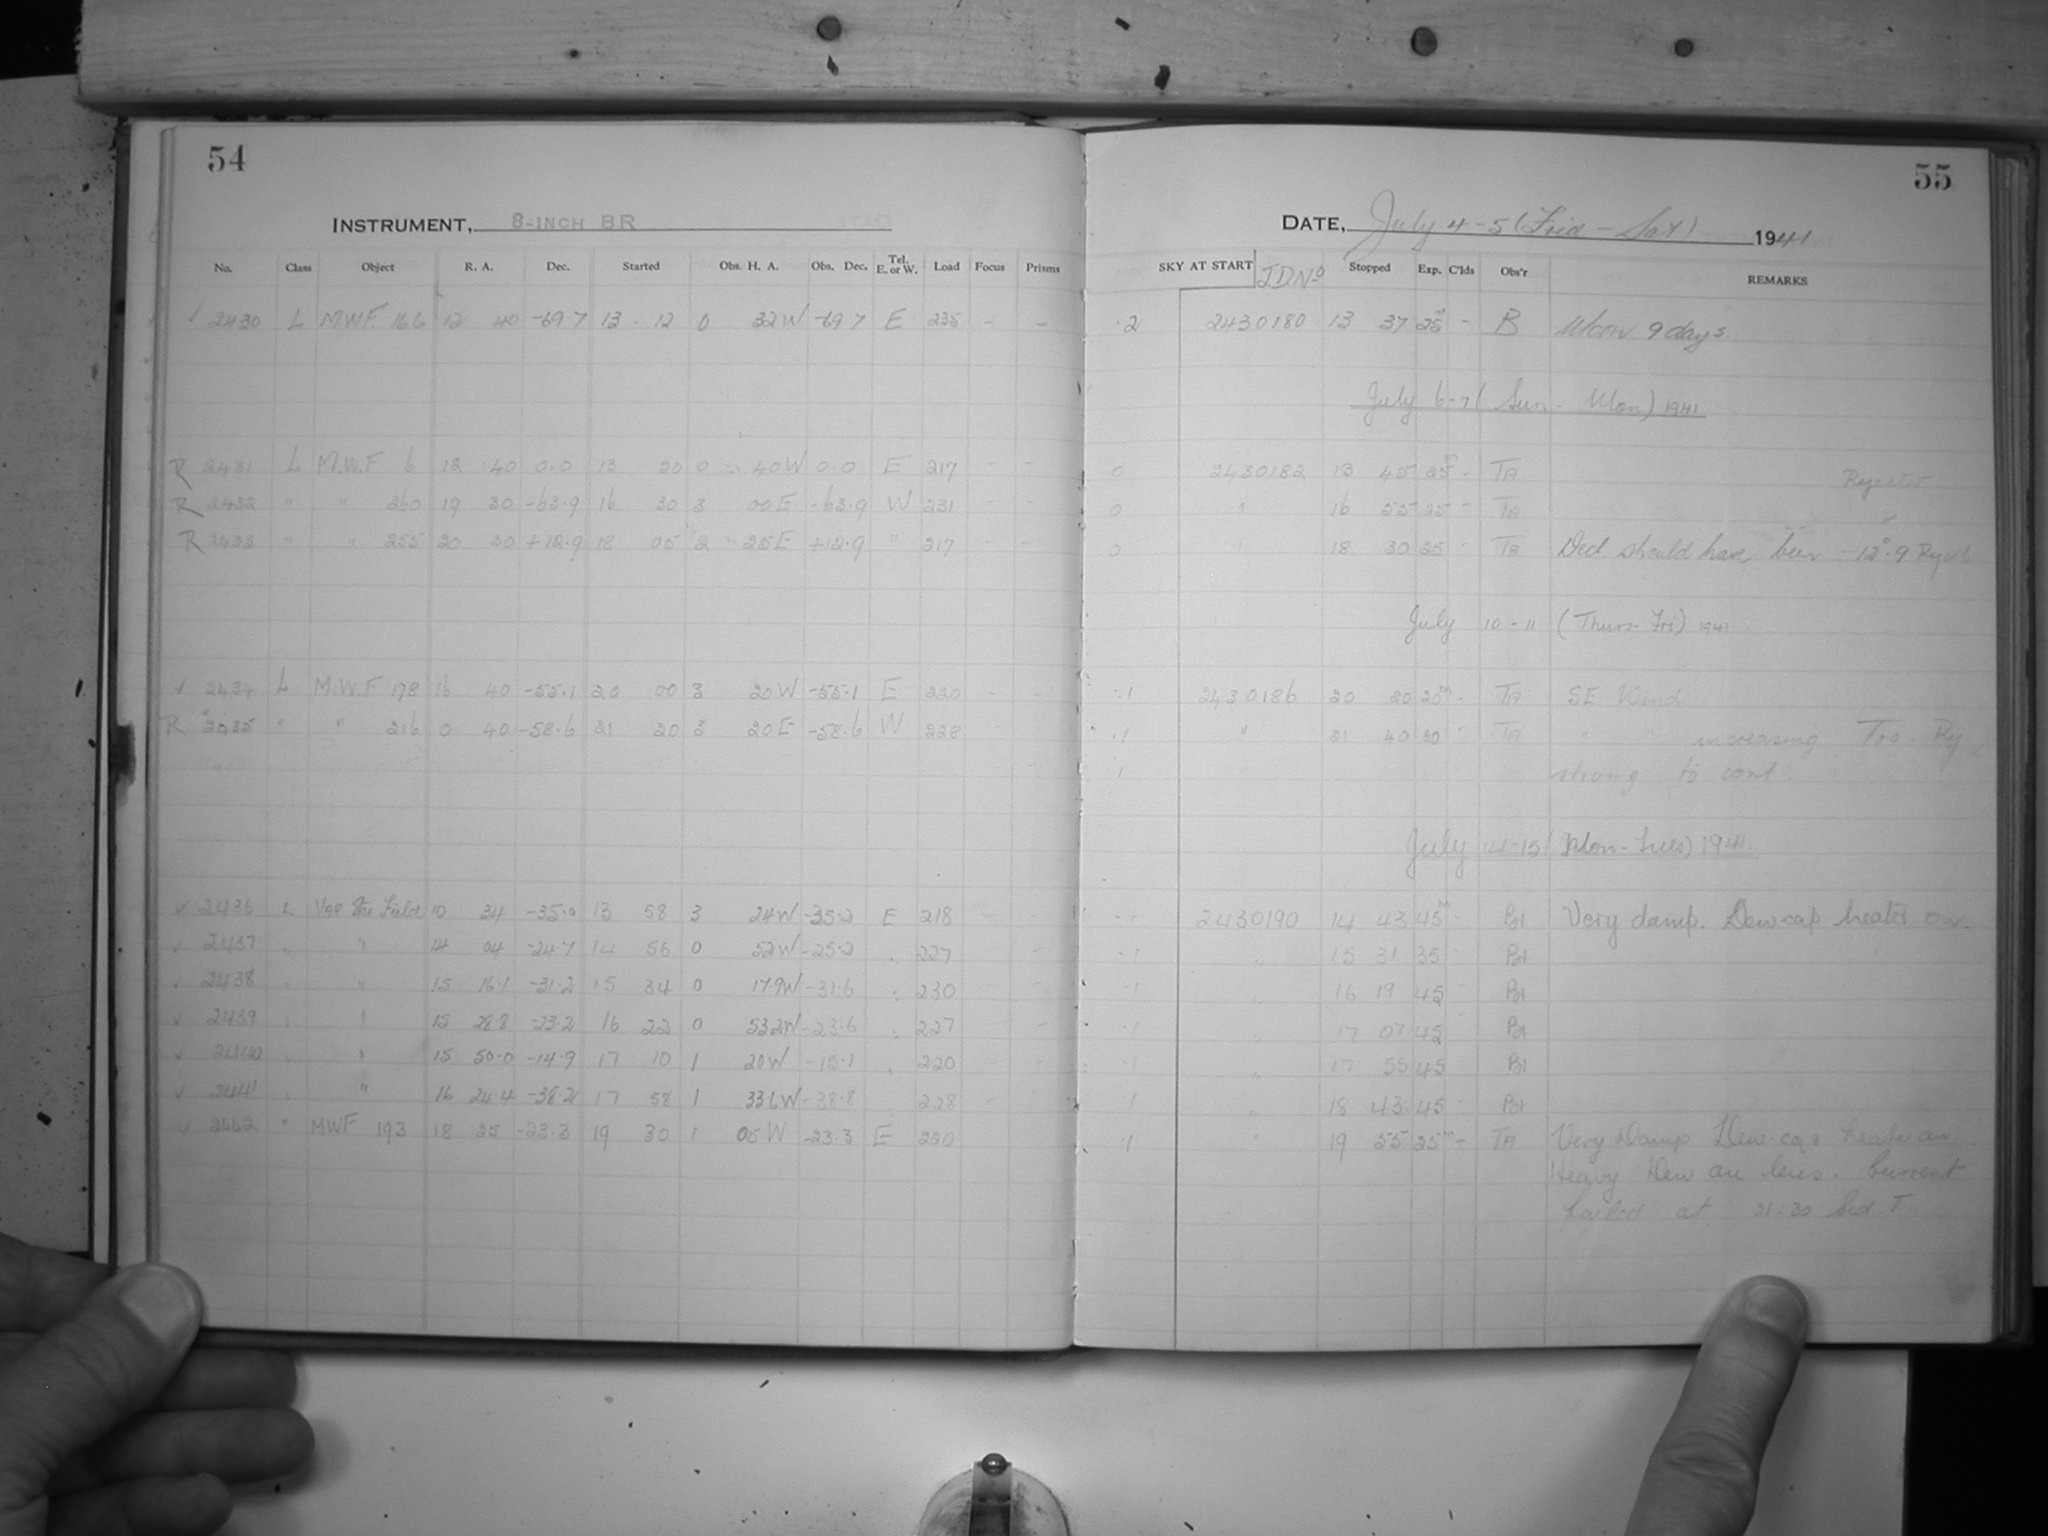 54
INSTRUMENT, 8-INCH BR
No. Class Object R. A. Dec. Started Obs. H. A. Obs. Dec. Tel. E. or W. Load Focus Prisms
✓ 2430 L M.W.F. 166 12 40 -69.7 13 12 0 32W -69.7 E 235 - -
R 2431 L M.W.F 6 12 40 0.0 13 20 0 40W 0.0 E 217 - -
R 2432 " " 260 19 30 -63.9 16 30 3 00E -63.9 W 231 - -
R 2433 " " 255 20 30 +12.9 18 05 2 25E +12.9 " 217 - -
✓ 2434 L M.W.F 178 16 40 -55.1 20 00 3 20W -55.1 E 220 - -
R 2435 " " 216 0 40 -58.6 21 20 3 20E -58.6 W 228
✓ 2436 L Var Str Field 10 34 -35.0 13 58 3 24W -35.2 E 218
✓ 2437 " " 14 04 -24.7 14 56 0 52W -25.2 " 227
2438 " " 15 16.1 -31.2 15 34 0 17.9W -31.6 " 230
✓ 2439 " " 15 28.8 -23.2 16 22 0 53.2W -23.6 " 227
✓ 2440 " " 15 50.0 -14.9 17 10 1 20W -15.1 " 220
✓ 2441 " " 16 24.4 -38.2 17 58 1 33.6W -38.8 228
✓ 2442 " MWF 193 18 25 -23.3 19 30 1 05W -23.3 E 220
55
DATE, July 4-5 (Frid - Sat) 1941
SKY AT START JD No Stopped Exp. C'lds Obs'r REMARKS
.2 2430180 13 37 25m - B Moon 9 days.
July 6-7 (Sun - Mon) 1941
0 2430182 13 45 25m - TA Rejected
0 " 16 55 25 - TA
0 " 18 30 25 - TA Decl should have been -12°.9
July 10-11 (Thurs-Fri) 1941
.1 2430186 20 20 20m - TA SE Wind
.1 " 21 40 20 - TA " " increasing Too Rej.
.1 strong to cont
July 14-15 (Mon-Tues) 1941.
.1 2430190 14 43 45m - Bt Very damp. Dew-cap heater on.
.1 " 15 31 35 Bt
.1 " 16 19 45 Bt
.1 " 17 07 45 Bt
.1 " 17 55 45 Bt
.1 " 18 43 45 Bt
.1 " 19 55 25m - TA Very Damp Dew-cap heater on
Heavy Dew on lens. Current
failed at 21:30 Sid. T